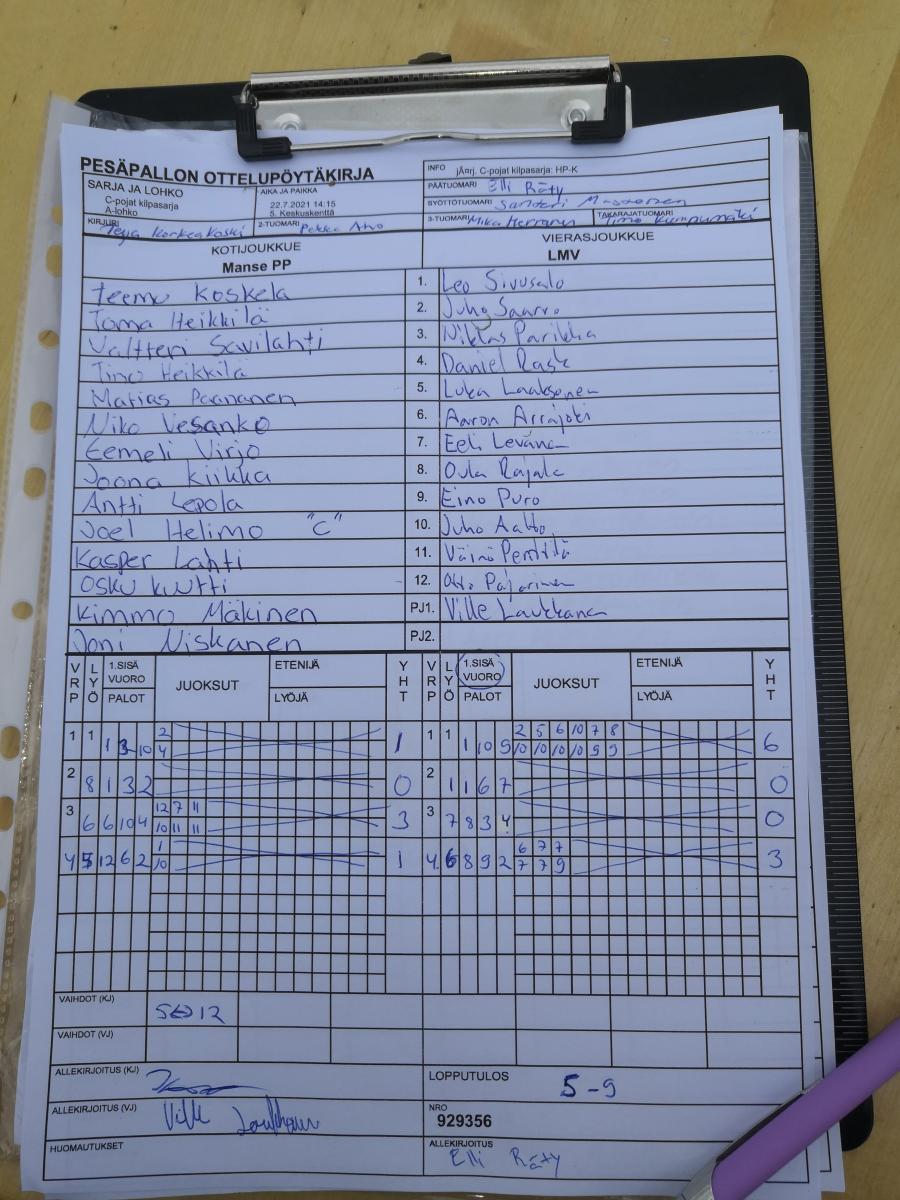 PESÄPALLON OTTELUPÖYTÄKIRJA
INFO jÄ¤rj. C-pojat kilpasarja: HP-K
SARJA JA LOHKO
C-pojat kilpasarja
A-lohko
AIKA JA PAIKKA
22.7.2021 14:15
5. Keskuskenttä
PÄÄTUOMARI Elli Räty
SYÖTTÖTUOMARI Santeri
KIRJURI Teija Korkeakoski
2-TUOMARI Pekka
3-TUOMARI Mika Herranen
TAKARAJATUOMARI Timo Kumpumäki
KOTIJOUKKUE
Manse PP
VIERASJOUKKUE
LMV
Teemu Koskela 1. Leo Sivusalo
Toma Heikkilä 2. Juho
Valtteri Savilahti 3. Niklas Parikka
Tino Heikkilä 4. Daniel Rask
Matias Paananen 5. Luka Laaksonen
Niko Vesanko 6. Aaron Arrajoki
Eemeli Virjo 7. Eeli Levänen
Joona Kiikka 8. Oula Rajala
Antti Lepola 9. Eino Puro
Joel Helimo "C" 10. Juho Aalto
Kasper Lahti 11. Väinö Penttilä
Osku Kintti 12. Otto Pajarinen
Kimmo Mäkinen PJ1. Ville Laukkanen
Joni Niskanen PJ2.
VRP LYÖ 1.SISÄ VUORO PALOT JUOKSUT ETENIJÄ LYÖJÄ YHT VRP LYÖ 1.SISÄ VUORO PALOT JUOKSUT ETENIJÄ LYÖJÄ YHT
2 2 5 6 10 7 8
1 1 1 3 10 4 1 1 1 1 10 9 10 10 10 10 9 9 6
2 8 1 3 2 0 2 1 1 6 7 0
12 7 11
3 6 6 10 4 10 11 11 3 3 7 8 3 4 0
1 6 7 7
4 5 12 6 2 10 1 4 6 8 9 2 7 7 9 3
VAIHDOT (KJ) 5↔12
VAIHDOT (VJ)
ALLEKIRJOITUS (KJ)
LOPPUTULOS 5-9
ALLEKIRJOITUS (VJ) Ville Laukkanen
NRO
929356
HUOMAUTUKSET
ALLEKIRJOITUS
Elli Räty